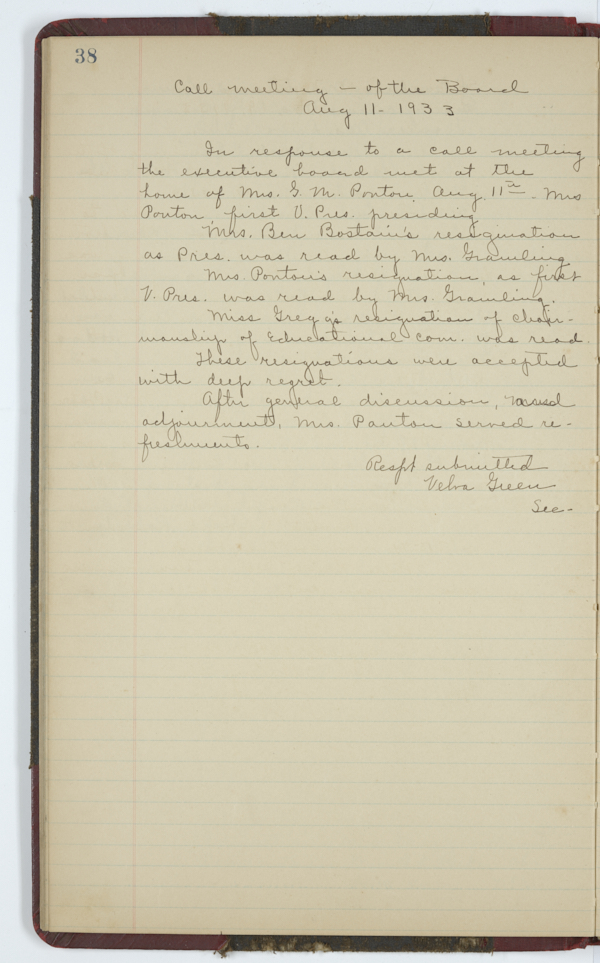 38
Call meeting — of the Board
Aug 11 - 1933
In response to a call meeting
the executive board met at the
home of Mrs. G. M. Ponton, Aug. 11th - Mrs
Ponton, first V. Pres. presiding.
Mrs. Ben Bostain's resignation
as Pres. was read by Mrs. Gramling.
Mrs. Ponton's resignation, as first
V. Pres. was read by Mrs. Gramling.
Miss Gregg's resignation of chair-
manship of Educational Com. was read.
These resignations were accepted
with deep regret.
After general discussion, and
adjournment, Mrs. Panton served re-
freshments.
Respt submitted
Velva Green
Sec-